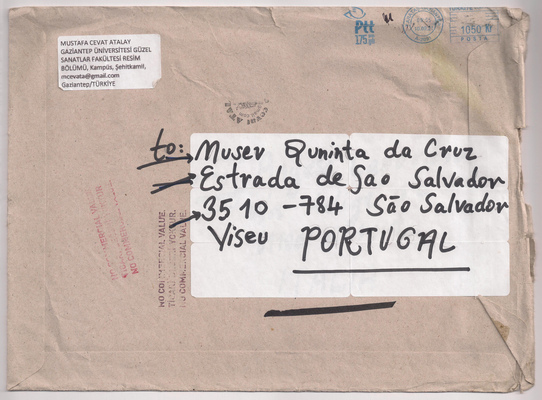 MUSTAFA CEVAT ATALAY
GAZİANTEP ÜNİVERSİTESİ GÜZEL
SANATLAR FAKÜLTESİ RESİM
BÖLÜMÜ, Kampüs, Şehitkamil,
mcevata@gmail.com
Gaziantep/TÜRKİYE
Ptt
175
1050
POSTA
cevat ATAL
to: Museu Quninta da Cruz
Estrada de Sao Salvador
3510-784 São Salvador
Viseu PORTUGAL
NO COMMERCIAL VALUE
NO COMMERCIAL VALUE.
NO COMMERCIAL VALUE.